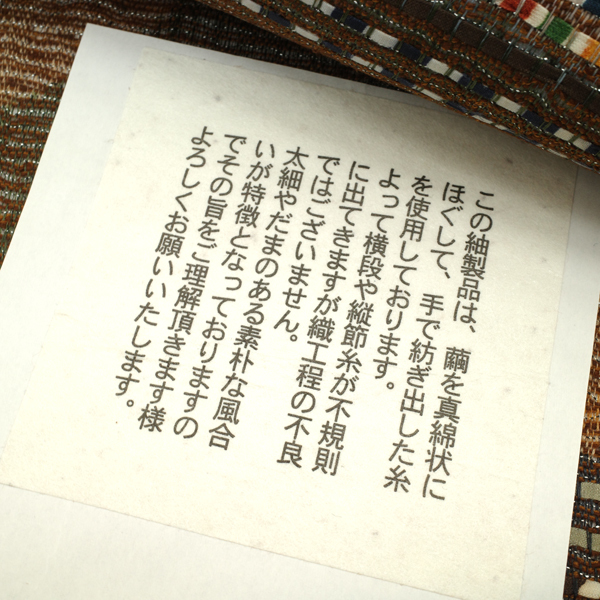 この紬製品は、繭を真綿状に
ほぐして、手で紡ぎ出した糸
を使用しております。
よって横段や縦節糸が不規則
に出てきますが織工程の不良
ではございません。
太細やだまのある素朴な風合
いが特徴となっておりますの
でその旨をご理解頂きます様
よろしくお願いいたします。